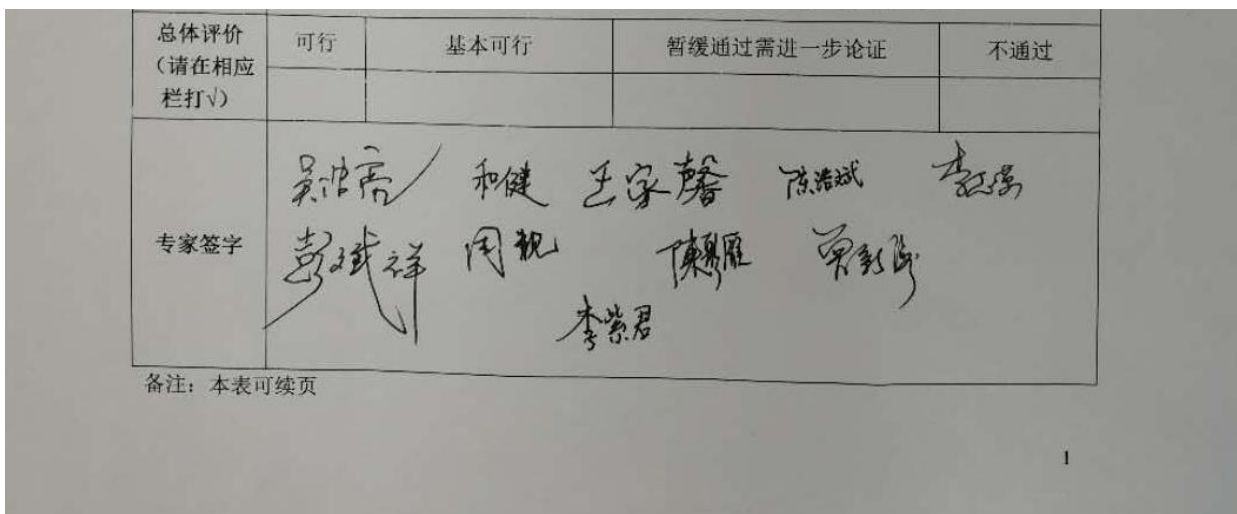 总体评价
（请在相应
栏打√）
可行
基本可行
暂缓通过需进一步论证
不通过
专家签字
和健 王家馨 陈浩斌
彭斌祥 周靓
李紫君
备注：本表可续页
1